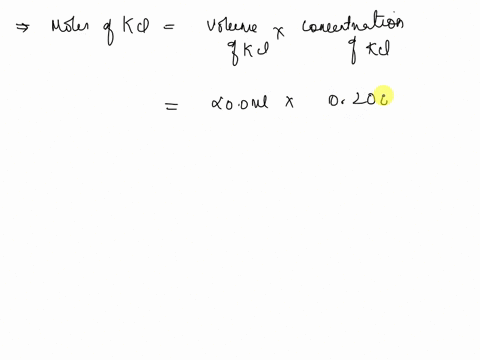 ⇒ Moles of KCl = Volume of KCl × concentration of KCl
= 20.0ml × 0.200